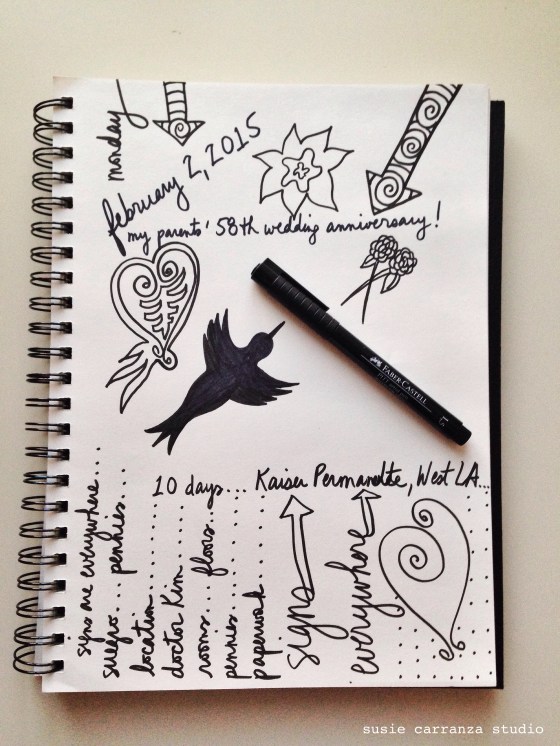 monday
february 2, 2015
my parents' 58th wedding anniversary!
FABER-CASTELL
10 days... Kaiser Permanente, West LA...
signs are everywhere...
suegro... pennies...
location...
doctor Kim...
rooms... floors...
pennies...
paperwork...
signs
everywhere
susie carranza studio